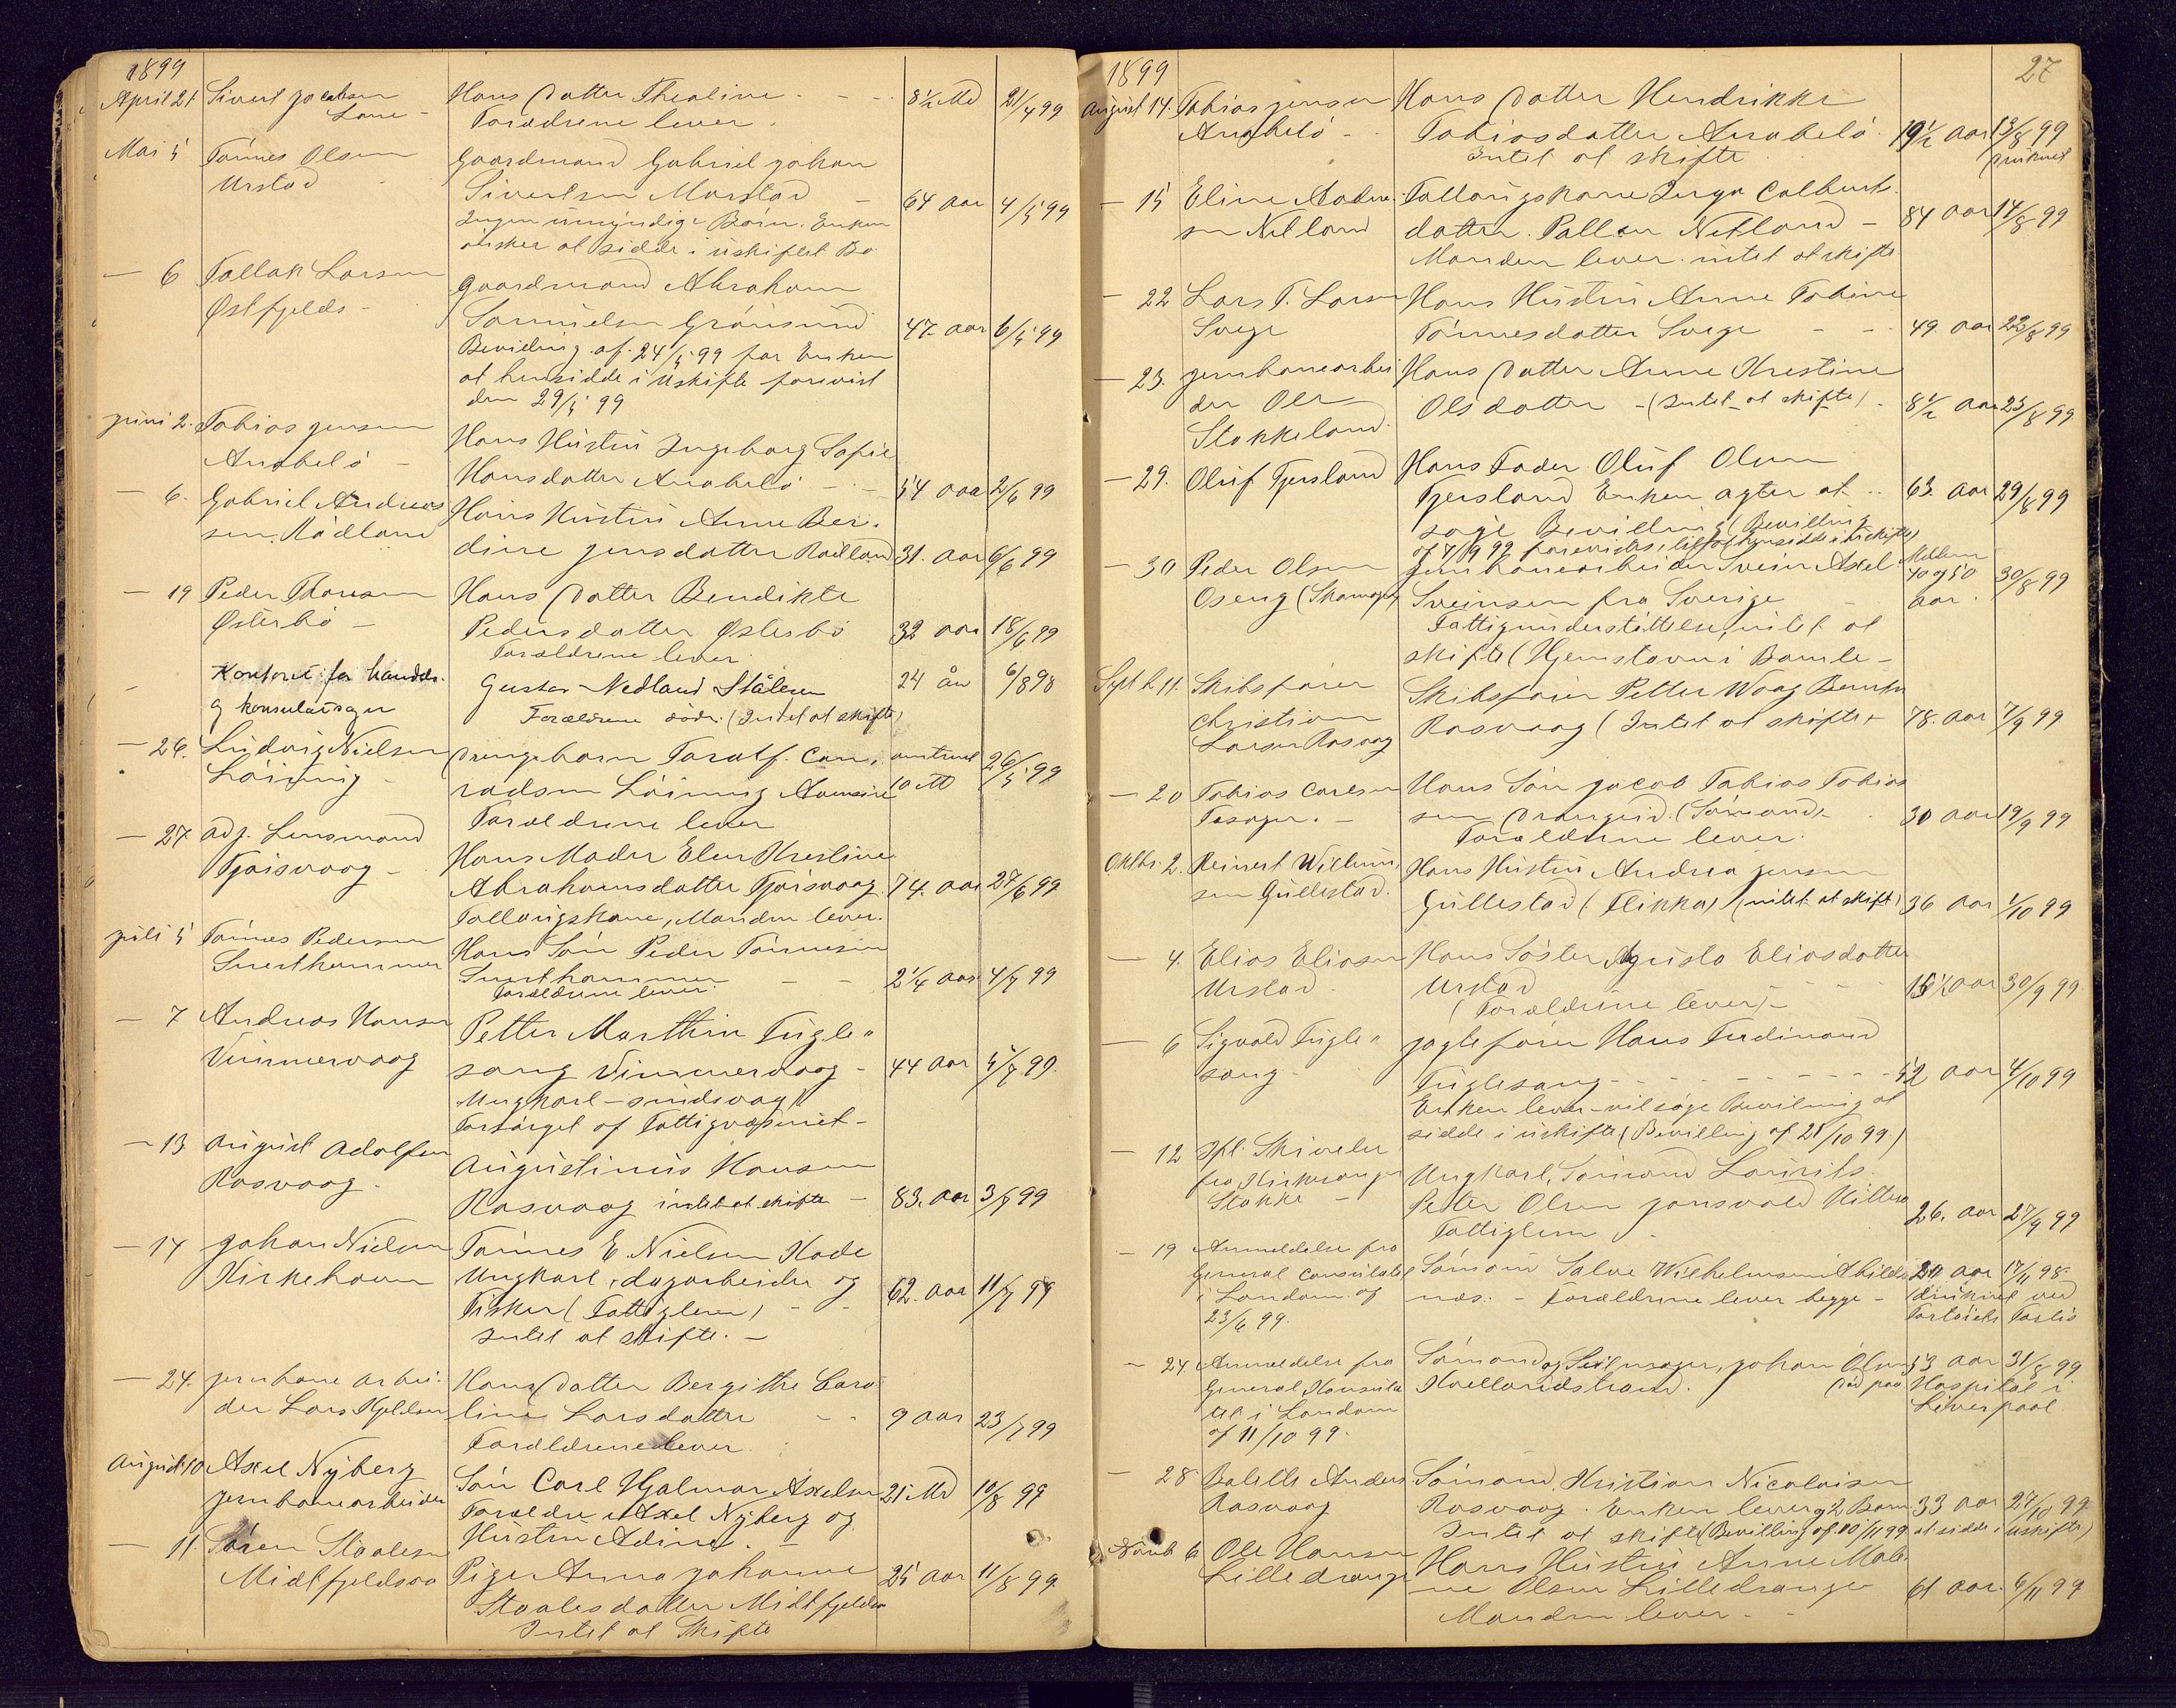 1899
April 21 Sivert Jacobsen Hans Datter Thealine - - - 8½ Md 21/4 99
Lone - Forældrene lever.
Mai 5 Tönnes Olsen Gaardmand Gabriel Johan
Urstad Sivertsen Marstad - 64 aar 4/5 99
Ingen umyndige Börn. Enken
önsker at sidde i uskiftet Bo
— 6 Tallak Larsen Gaardmand Abraham
Østfjelds - Samuelsen Grönsund 47 aar 6/5 99
Bevilling af 24/5 99 for Enken
at hensidde i uskifte forevist
den 29/5 99
Juni 2. Tobias Jensen Hans Hustru Ingeborg Sofie
Anabelö - Hansdatter Anabelö - - 54 aar 2/6 99
— 6. Gabriel Andreas Hans Hustru Anne Ber-
sen Rådland dine Jensdatter Rådland 31. aar 6/6 99
— 19 Peder Hansen Hans Datter Bendikte
Østerbö - Pedersdatter Østerbö 32 aar 18/6 99
Forældrene lever
- Kontoret for handels- Gustav Nedland Stålesen 24 år 6/8 98
og konsulatsager Forældrene döde. (Intet at skifte)
— 26. Ludvig Nielsen Drengebarn Toralf Con- omtrent 26/5 99
Löining - radsen Löining 10 M
Forældrene lever
— 27. adj. Lensmand Hans Moder Elen Krestine
Fjoisvaag - Abrahamsdatter Fjoisvaag 74. aar 27/6 99
Follaugskone, Manden lever.
Juli 5 Tönnes Pedersen Hans Sön Peder Tönnesen
Sverthammer Sverthammer - - 2¼ aar 4/7 99
Forældrene lever.
— 7 Andreas Hansen Petter Marthin Fugle-
Vimmervaag sang Vimmervaag - 44 aar 5/7 99.
Ungkarl - sindsvag
Forsörget af Fattigvæsenet -
— 13 August Adolfsen Augustinus Hansen
Rasvaag. Rasvaag intet at skifte - 83. aar 3/7 99
— 14 Johan Nielsen Tönnes E. Nielsen Hade
Kirkehavn Ungkarl, dagarbeider og 62. aar 11/7 99
Fisker (Fattiglem) - -
Intet at skifte. -
— 24. Jernbane arbei- Hans Datter Bergithe Caro-
der Lars Kjeldsen line Larsdatter - - 9 aar 23/7 99
Forældrene lever.
August 10 Axel Nyberg Sön Carl Hjalmar Axelsen 21 Md 10/8 99
Jernbanearbeider Forældre Axel Nyberg og
Hustru Adine. -
— 11 Sören Staalesen Pige Anna Johanne 25 aar 11/8 99.
Midtfjeldsaa Staalesdatter Midtfjeldsaa
Intet at Skifte
1899 27
August 14. Tobias Jensen Hans Datter Hendrikke
Anabelö - Tobiasdatter Anabelö. 19½ aar 13/8 99
Intet at skifte druknet
— 15 Eline Follaugskone Inga Colberts-
sen Netland datter. Netland - 84 aar 14/8 99
Manden lever. intet at skifte
— 22 Lars T. Larsen Hans Hustru Anne Tobine
Svege Tönnesdatter Svege - - 49. aar 22/8 99
— 23. Jernbanearbei Hans Datter Anne Krestine
der Ole Olsdatter - (Intet at skifte) - 8½ aar 23/8 99
Stokkeland.
— 29. Oluf Fjersland Hans Fader Oluf Olsen
Fjersland Enken agter at .. 63. aar 29/8 99
söge Bevilling (Bevilling
af 4/9 99 forevistes, til at hensidde i uskifte)
— 30 Peder Olsen Jernbanearbeider Svein Axel Mellem
Oseng Sveinsen fra Sverige - 40 og 50 30/8 99
Fattigunderstöttelse, intet at aar.
skifte (Hjemstavn i Bamle -
Septb 11. Skibsförer Skibsförer Petter Waag Berntsen
Christian Rasvaag (Intet at skifte - 78. aar 7/9 99
Larsen Rasvaag
— 20 Tobias Carlsen Hans Sön Jacob Tobias Tobias
Fosager. - sen Drangeid. (Sömand) - 30 aar 19/9 99
Forældrene lever.
Oktbr. 2. Reinert Willum Hans Hustru Andrea Jensen
sen Gullestad. Gullestad (Flikka) (intet at skifte) 36 aar 1/10 99
— 4. Elias Eliasen Hans Söster Agusta Eliasdatter
Urstad. Urstad - - - - - aar 30/9 99.
(Forældrene lever) -
— 6 Sigvald Fugle- Jagteförer Hans Ferdinand
sang - Fuglesang - - - - - - 52 aar 4/10 99
Enken lever - vil söge Bevilning at
sidde i uskifte (Bevilling af 21/10 99)
— 12 Spl. Skrivelse Ungkarl, Sömand Laurits
fra Kirkesanger Peter Olsen Jonsvold Hitterö 26. aar 27/9 99
Stokke - Fattiglem -
— 19 Anmeldelse fra Sömand Salve Wilhelmsen Abilds- 20 aar 17/11 98
General Consulatet nes. - Forældrene lever begge - druknet ved
i London af Forlis
23/6 99.
— 24 Anmeldelse fra Sömand og Seilmager, Johan Olsen 53 aar 31/8 99
General Konsula Hoellandstrand. Död paa Hospital i
tet i London Liverpool.
af 11/10 99.
— 28 Anders Sömand, Kristian Nicolaisen
Rasvaag Rasvaag. Enken lever og 2 Barn 33 aar 27/10 99
Intet at skifte (Bevilling af 10/11 99 at sidde i uskifte)
Novb 6 Ole Hansen Hans Hustru Anne Male-
Lilledrange ne Olsen Lilledrange 61 aar. 6/11 99
Manden lever. -